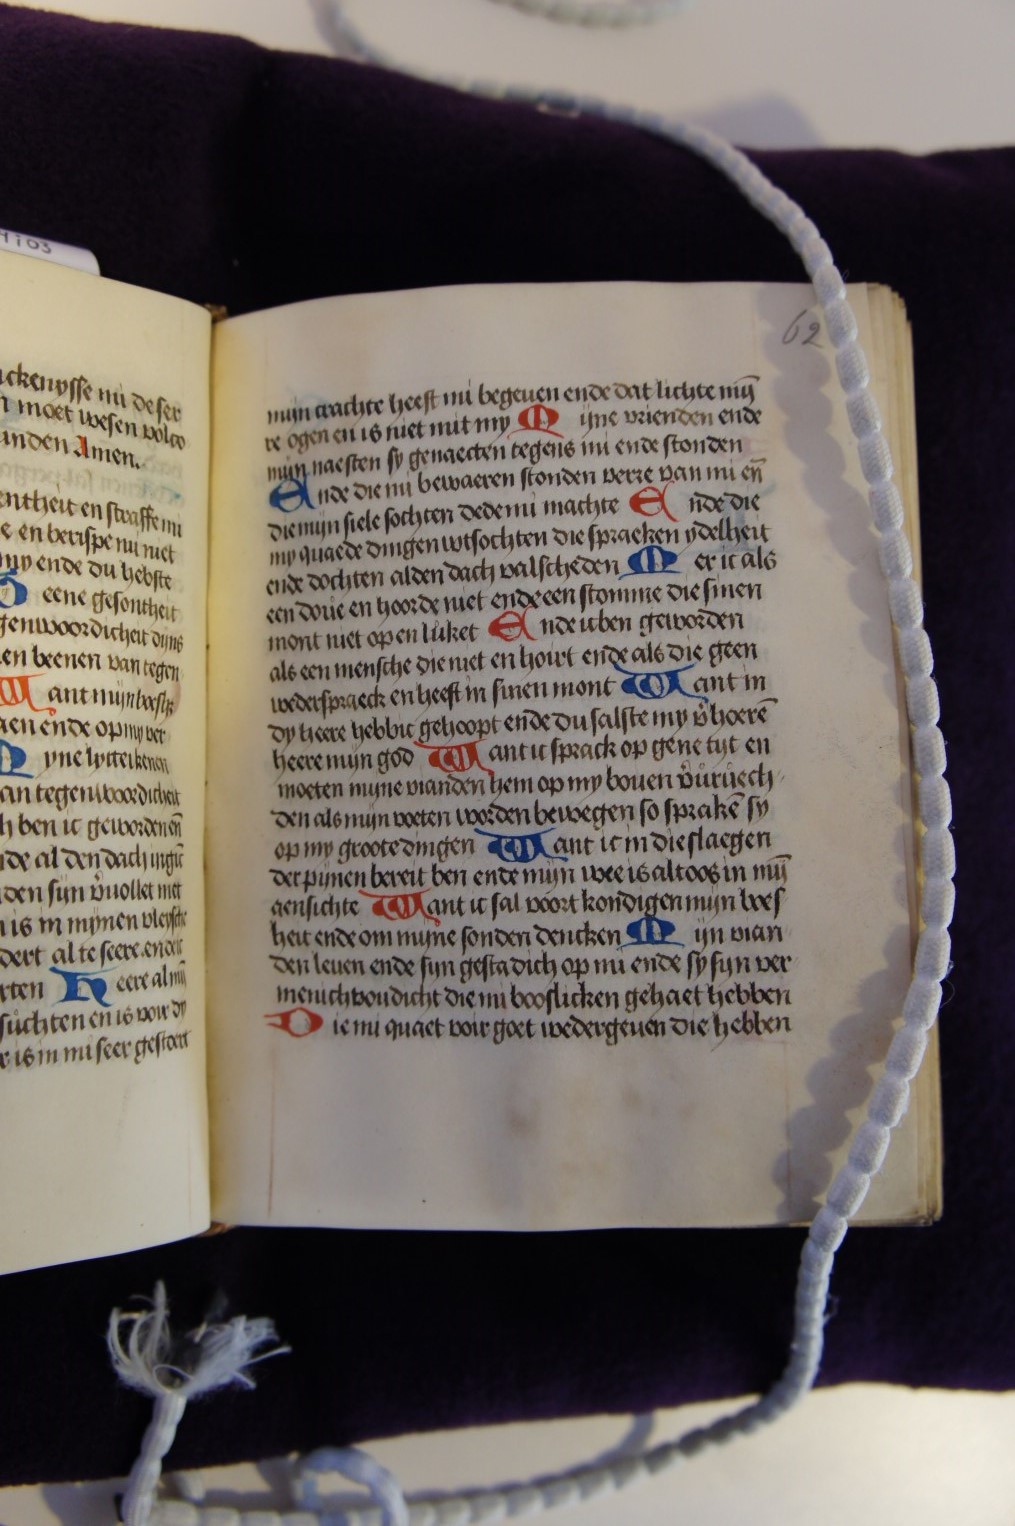 4103
ckenysse mi deser
moet wesen volco
unden Amen.
entheit en straffe mi
e en berispe mi niet
my ende du hebste
D eene gesontheit
genwoordicheit dijns
en beenen van tegen
W ant mijn boesh
aen ende op my ver
M yne lyttekenen
an tegenwoordicheit
h ben ic geworden eñ
de al den dach ingic
den sijn v̄vollet met
is in mijnen vleysche
dert al te seere. en
rten H eere al mij
suchten en is voir dy
r is in mi seer gestoert
62
mijn crachte heeft mi begeven ende dat lichte mij̄
re ogen en is niet mit my M ijne vrienden ende
mijn naesten sy genaecten tegens mi ende stonden
E nde die mi bewaeren stonden verre van mi eñ
die mijn siele sochten deden mi machte E nde die
my quaede dingen wtsochten die spraeken ydelheit
ende dochten al den dach valscheden M er ic als
een douë en hoorde niet ende een stomme die sinen
mont niet open luket E nde ic ben geworden
als een mensche die niet en hoirt ende als die geen
wederspraeck en heeft in sinen mont W ant in
dy heere heb ic gehoopt ende du salste my v̄hoerē
heere mijn god W ant ic sprack op gene tijt en
moeten mijne vianden hem op my boven v̄vrüech
den als mijn voeten worden bewegen so sprakē sy
op my groote dingen W ant ic in die slaegen
der pijnen bereit ben ende mijn wee is altoos in mij̄
aensichte W ant ic sal voort kondigen mijn boes
heit ende om mijne sonden dencken M ijn vian
den leven ende sijn gestadich op mi ende sy sijn ver
menichvoudicht die mi booslicken gehaet hebben
D ie mi quaet voir goet wedergeven die hebben